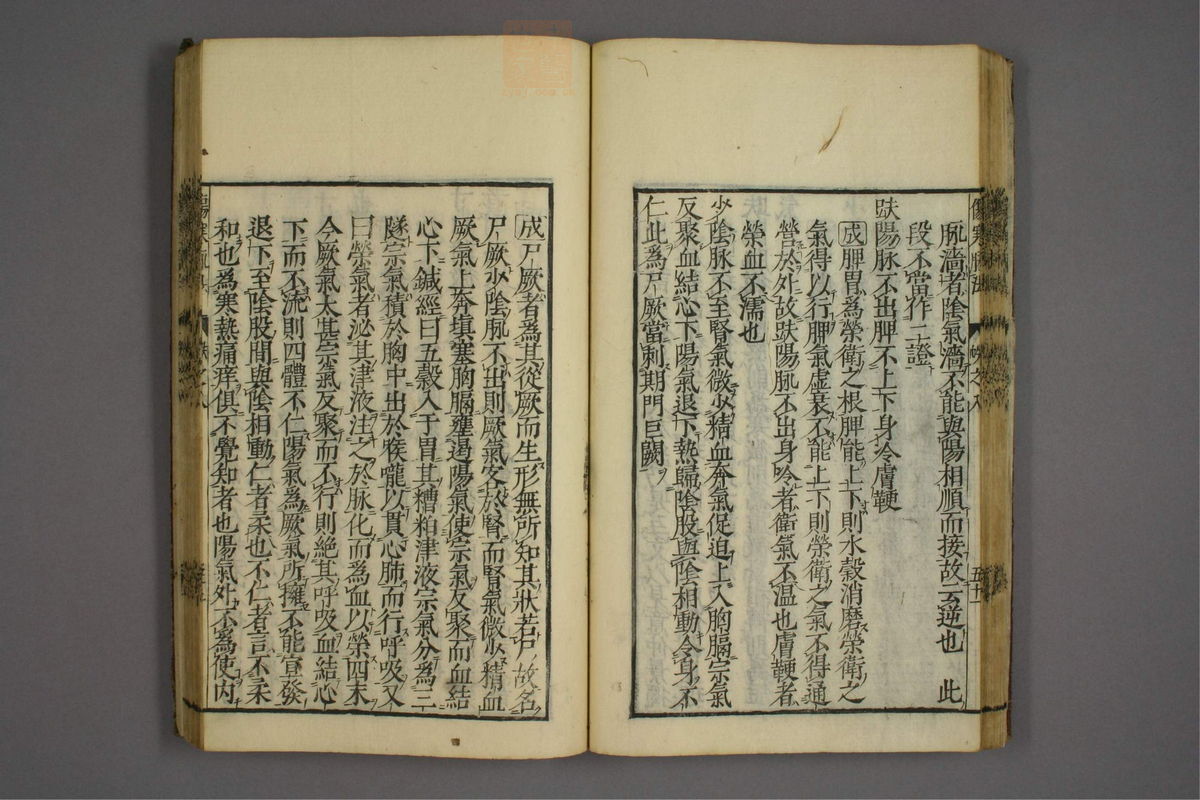 脉濇者陰氣濇不能與陽相順而接故云逆也　此
段不當作二證
趺陽脉不出脾不上下身冷膚鞕
成脾胃爲榮衛之根脾能上下則水穀消磨榮衛之
氣得以行脾氣虛衰不能上下則榮衛之氣不得通
營於外故趺陽脉不出身冷者衛氣不温也膚鞕者
榮血不濡也
少陰脉不至腎氣微少精血奔氣促迫上入胸膈宗氣
反聚血結心下陽氣退下熱歸陰股與陰相動令身不
仁此爲尸厥當刺期門巨闕
成尸厥者爲其從厥而生形無所知其狀若尸故名
尸厥少陰脉不出則厥氣客於腎而腎氣微少精血
厥氣上奔填塞胸膈壅遏陽氣使宗氣反聚而血結
心下鍼經曰五穀入于胃其糟粕津液宗氣分爲三
隧宗氣積於胸中出於喉嚨以貫心肺而行呼吸又
曰榮氣者泌其津液注之於脉化而爲血以榮四末
今厥氣太甚宗氣反聚而不行則絶其呼吸血結心
下而不流則四體不仁陽氣爲厥氣所擁不能宣發
退下至陰股間與陰相動仁者柔也不仁者言不柔
和也爲寒熱痛痒俱不覺知者也陽氣外不爲使内